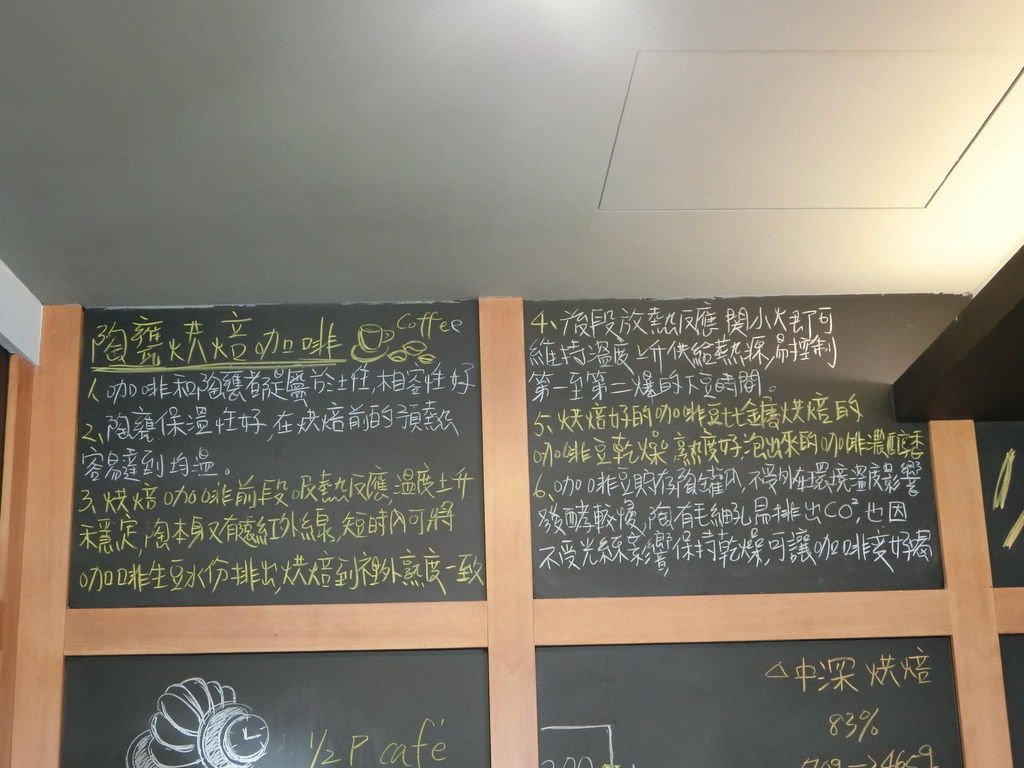 陶甕烘焙咖啡 Coffee
1. 咖啡和陶甕都是屬於土性,相容性好
2. 陶甕保溫性好,在烘焙前的預熱
容易達到均溫。
3. 烘焙咖啡前段吸熱反應溫度上升
穩定,陶本身又有遠紅外線,短時內可將
咖啡生豆水份排出,烘焙到裡外熟度一致
4. 後段放熱反應關小火即可
維持溫度上升供給熱源,易控制
第一至第二爆的下豆時間。
5. 烘焙好的咖啡豆比金屬烘焙的
咖啡豆乾燥熟度好泡出來的咖啡濃醇香
6. 咖啡豆貯存陶罐內,不受外在環境溫度影響
發酵較慢,陶有毛細孔易排出CO²,也因
不受光線影響,保持乾燥,可讓咖啡變好喝
1/2 P café
△中深烘焙
83%